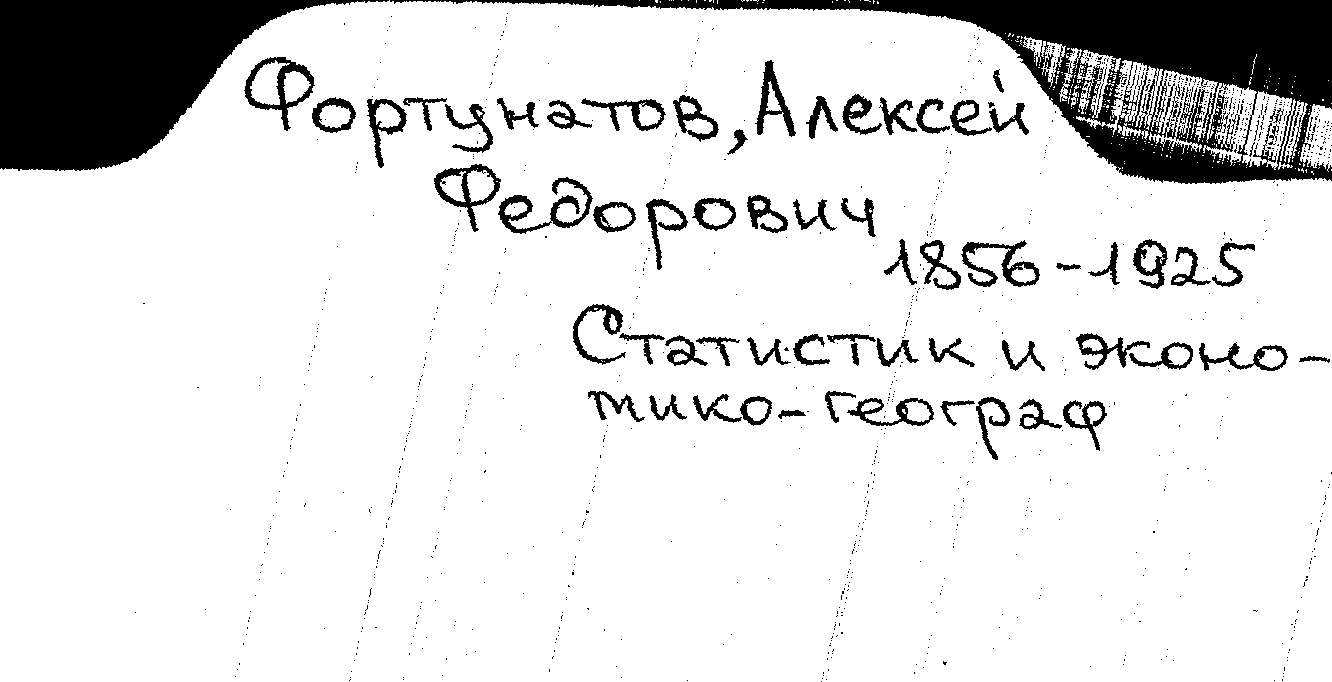 Фортунатов, Алексей
Федорович
1856-1925
Статистик и эконо-
мико-географ